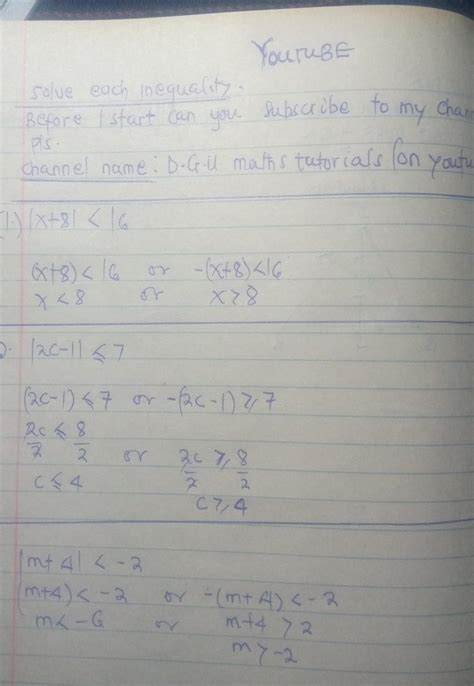 YouTUBE
Solve each inequality.
Before I start can you subscribe to my chan
pls.
Channel name: D.G.U maths tutorials (on youtu
1.) |x+8| < 16
(x+8) < 16 or -(x+8) < 16
x < 8 or x > 8
|2c-1| ⩽ 7
(2c-1) ⩽ 7 or -(2c-1) ⩾ 7
2c/2 ⩽ 8/2 or 2c/2 ⩾ 8/2
c ⩽ 4
c ⩾ 4
|m+4| < -2
(m+4) < -2 or -(m+4) < -2
m < -6 or m+4 > 2
m > -2